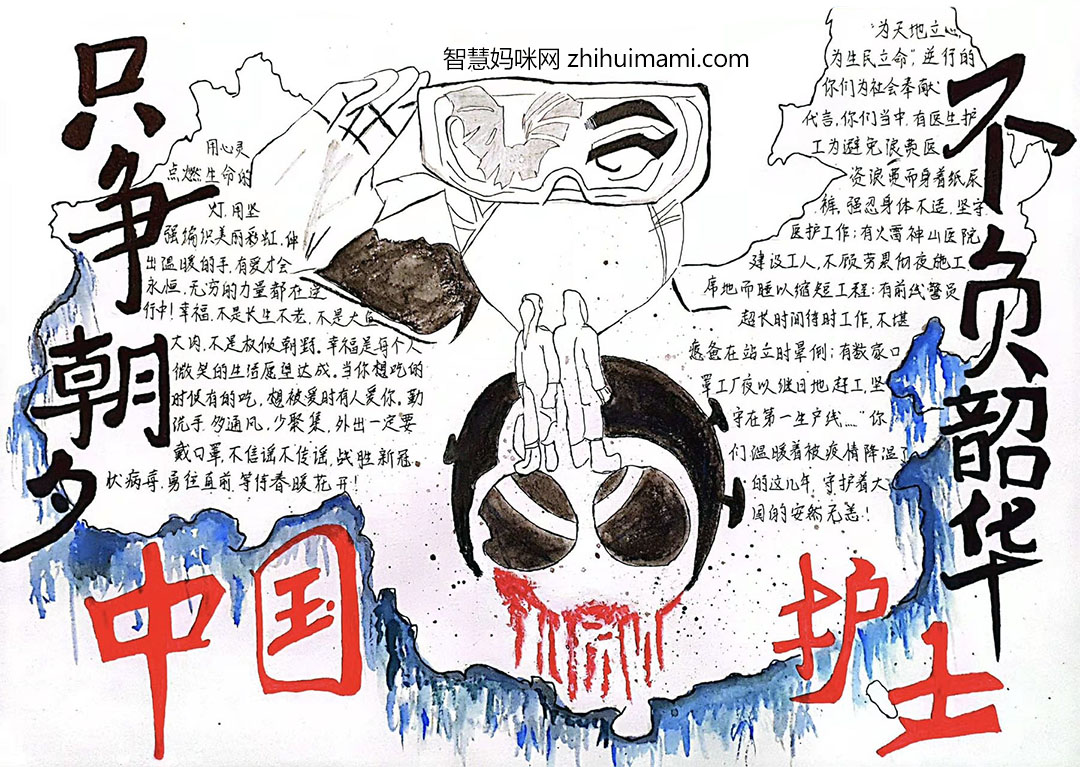 智慧妈咪网 zhihuimami.com
只争朝夕
不负韶华
用心灵
点燃生命的
灯,用坚
强编织美丽彩虹,伸
出温暖的手,有爱才会
永恒,无穷的力量都在逆
行中!幸福,不是长生不老,不是大鱼
大肉,不是权倾朝野。幸福是每个人
微笑的生活愿望达成。当你想吃的
时候有的吃,想被爱时有人爱你。勤
洗手多通风,少聚集,外出一定要
戴口罩,不信谣不传谣,战胜新冠
状病毒,勇往直前,等待春暖花开!
“为天地立心
为生民立命”,逆行的
你们为社会奉献
代言,你们当中,有医生护
工为避免浪费医
资浪费而身着纸尿
裤,强忍身体不适,坚守
医护工作;有火雷神山医院
建设工人,不顾劳累彻夜施工
席地而睡以缩短工程;有前线警员
超长时间待时工作,不堪
惫怠在站立时晕倒;有数家口
罩工厂夜以继日地,赶工,坚
守在第一生产线....“你
们温暖着被疫情降温了
的这几年,守护着大
国的安然无恙!
中国
护士